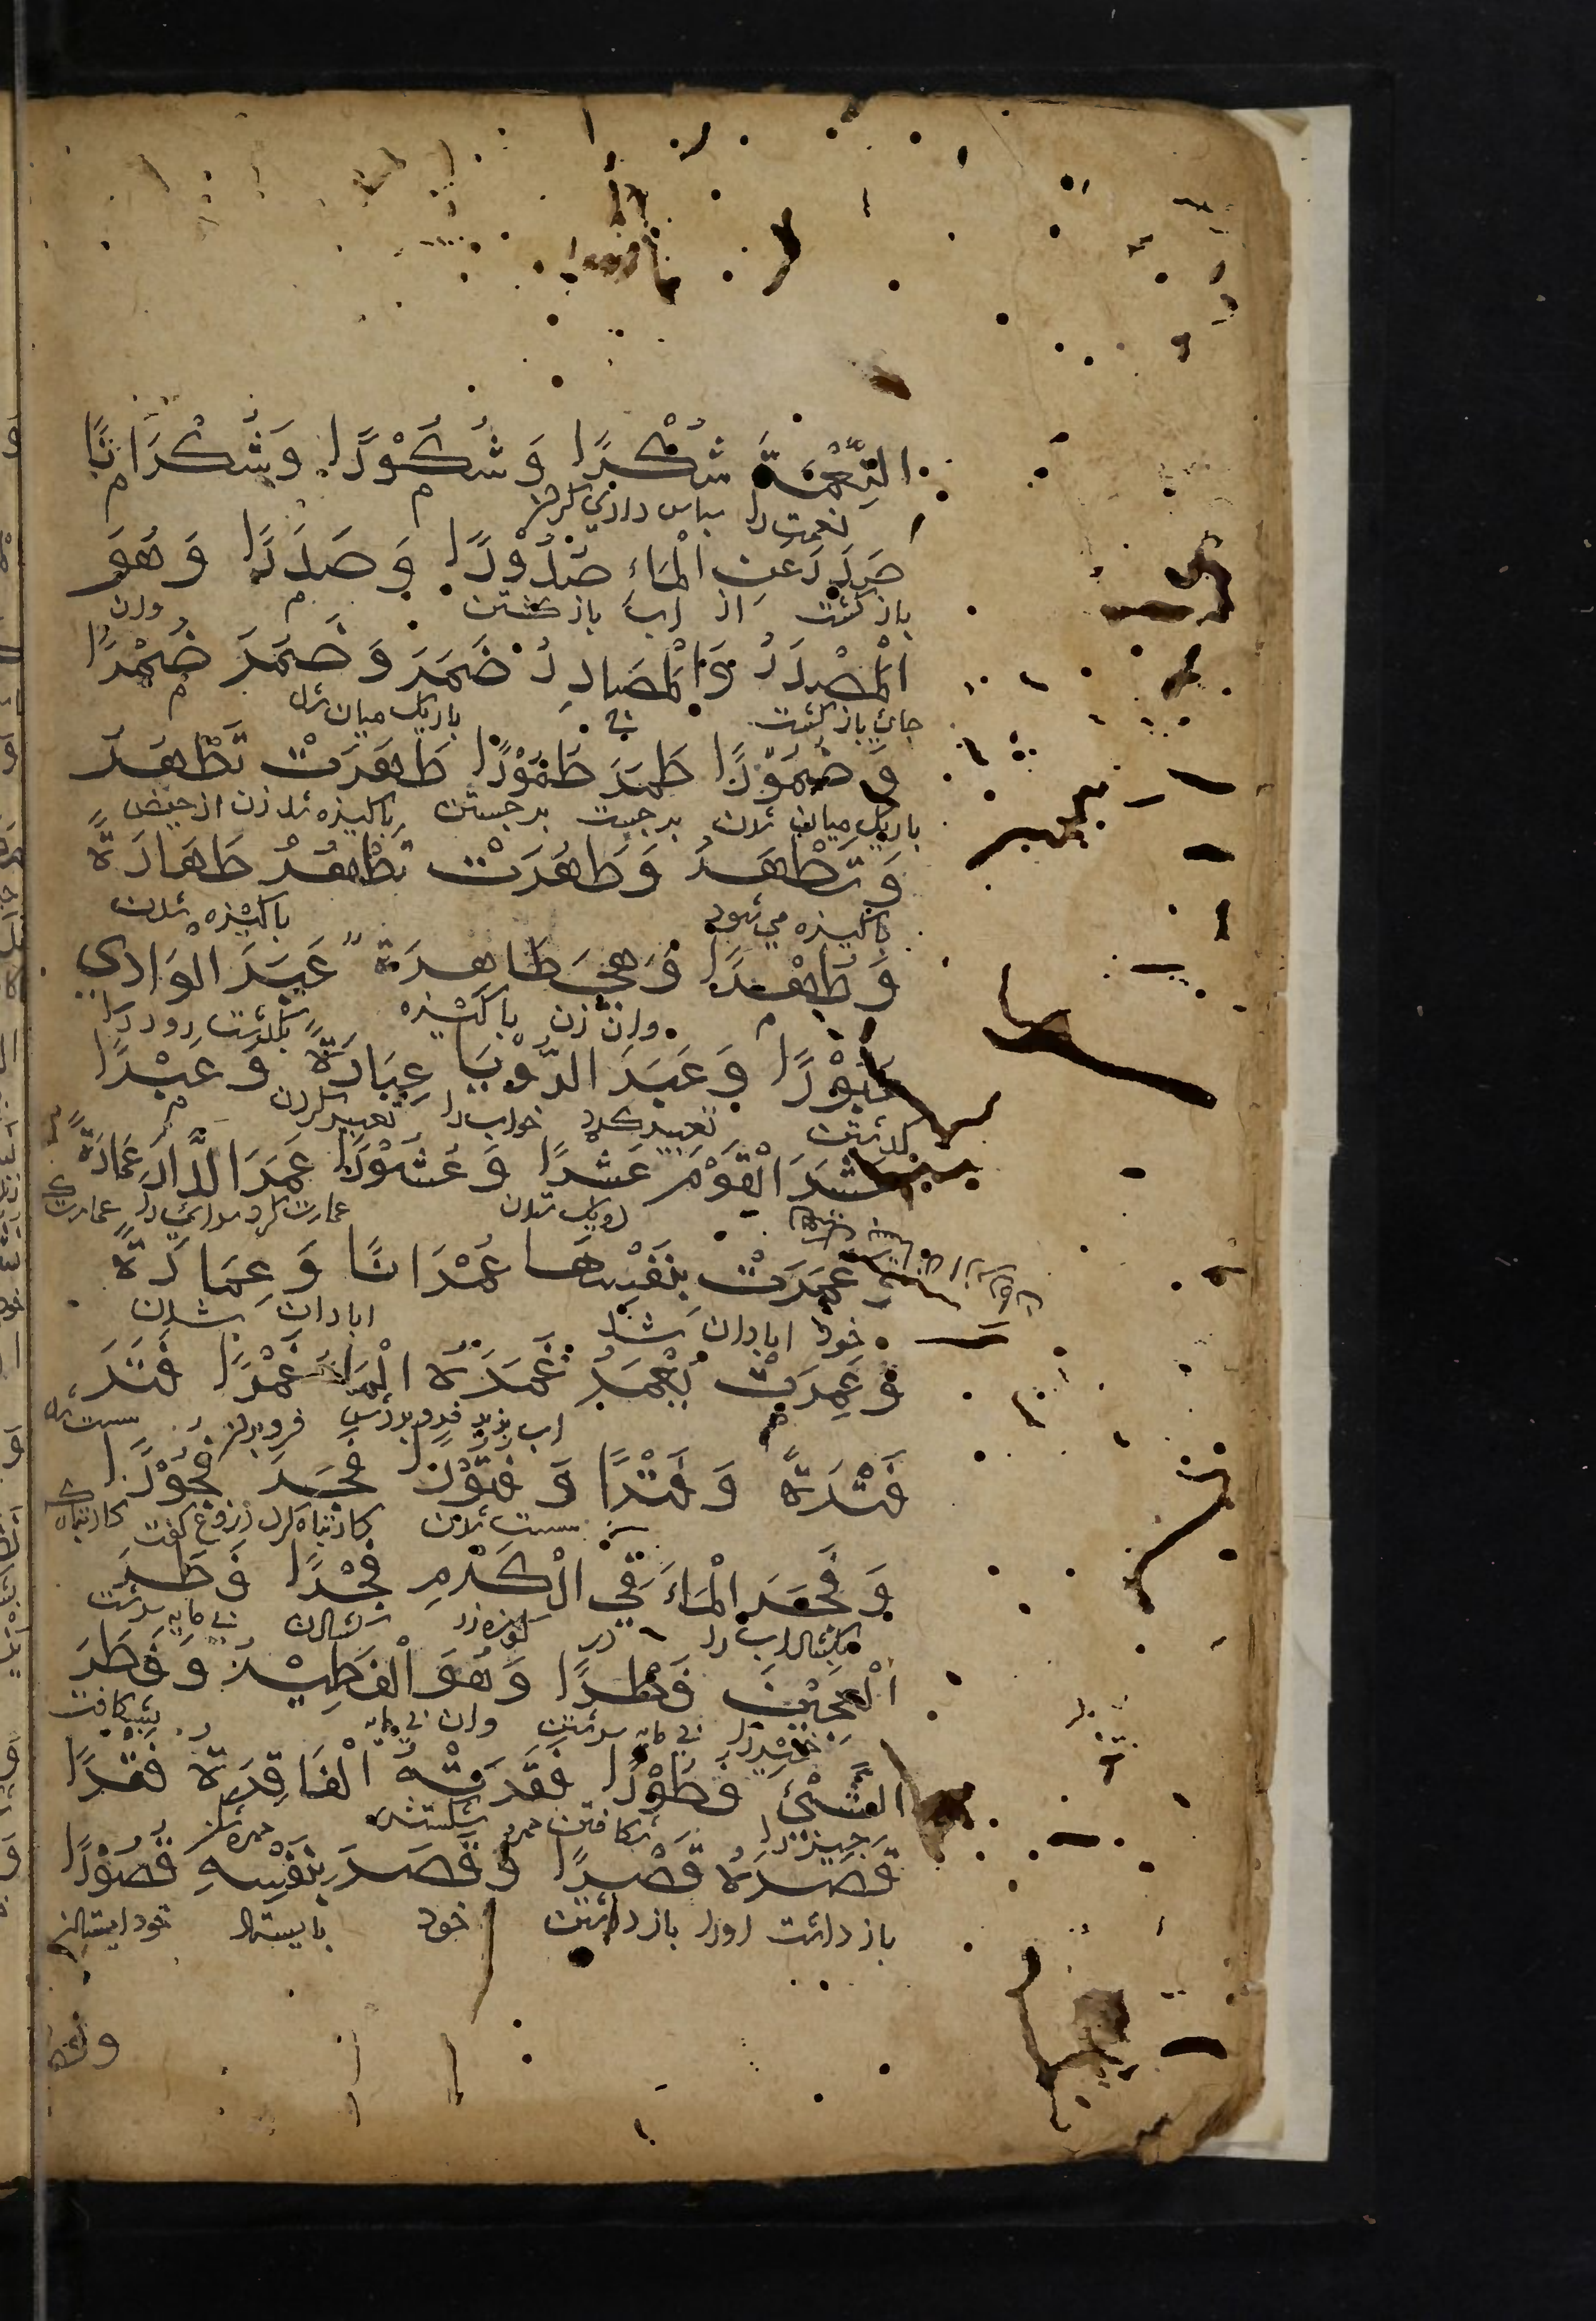 النِّعْمَةَ شُكْرًا وَ شُكُوْرًا وَشُكْرَانًا
نعمت را سپاس داری کرد
صَدَرَ عَنِ الْمَاءِ صُدُوْرًا وَ صَدَرًا وَ هُوَ
باز کشت از اب باز کشتن وان
الْمَصْدَرُ وَالْمَصَادِرُ ضَمَرَ وَ ضَمُرَ ضُمْرًا
جای باز کشت باریک میان شد
وَ ضُمُوْرًا طَمَرَ طُمُوْرًا طَهَرَتْ تَطْهَرُ
باریک میان شدن برجست برجستن پاکیزه شد زن از حیض
وَ تَطْهُرُ وَ طَهُرَتْ تَطْهُرُ طَهَارَةً
پاکیزه می شود پاکیزه شدن
وَ طُهْرًا وَ هِيَ طَاهِرَةٌ عَبَرَ الْوَادِي
وان زن پاکیزه بکذشت رود را
عُبُوْرًا وَ عَبَرَ الرُّؤْيَا عِبَارَةً وَ عَبْرًا
کذشتن تعبیر کرد خواب را تعبیر کردن
عَشَرَ الْقَوْمَ عَشْرًا وَ عُشُوْرًا عَمَرَ الدَّارَ عِمَارَةً
ده یک ستدن عمارت کرد سرای را عمارت
وَ عَمَرَتْ بِنَفْسِهَا عُمْرَانًا وَ عِمَارَةً
خود ابادان شد ابادان شدن
وَ عَمِرَتْ يَعْمَرُ غَمَرَهُ الْمَاءُ غَمْرًا فَتَرَ
اب فرو بردش فرو بردن سست شد
فَتْرَةً وَ فَتْرًا وَ فُتُوْرًا فَجَرَ فُجُوْرًا
سست شدن کار تباه کرد دروغ کفت کار تباه
وَ فَجَرَ الْمَاءَ فِي الْكَرْمِ فَجْرًا فَطَرَ
بکشاد اب را در کشادن بی مایه سرشت
الْعَجِيْنَ فَطْرًا وَ هُوَ الْفَطِيْرُ وَ فَطَرَ
خمیر را بی مایه سرشتن وان بی مایه بشکافت
الشَّيْئَ فُطُوْرًا فَقَرَتْهُ الْفَاقِرَةُ فَقْرًا
چیز را شکافتن شکستش
قَصَرَهُ قَصْرًا وَ قَصَرَ بِنَفْسِهِ قُصُوْرًا
باز داشت اورا باز داشتن خود بایستاد خود ایستادن